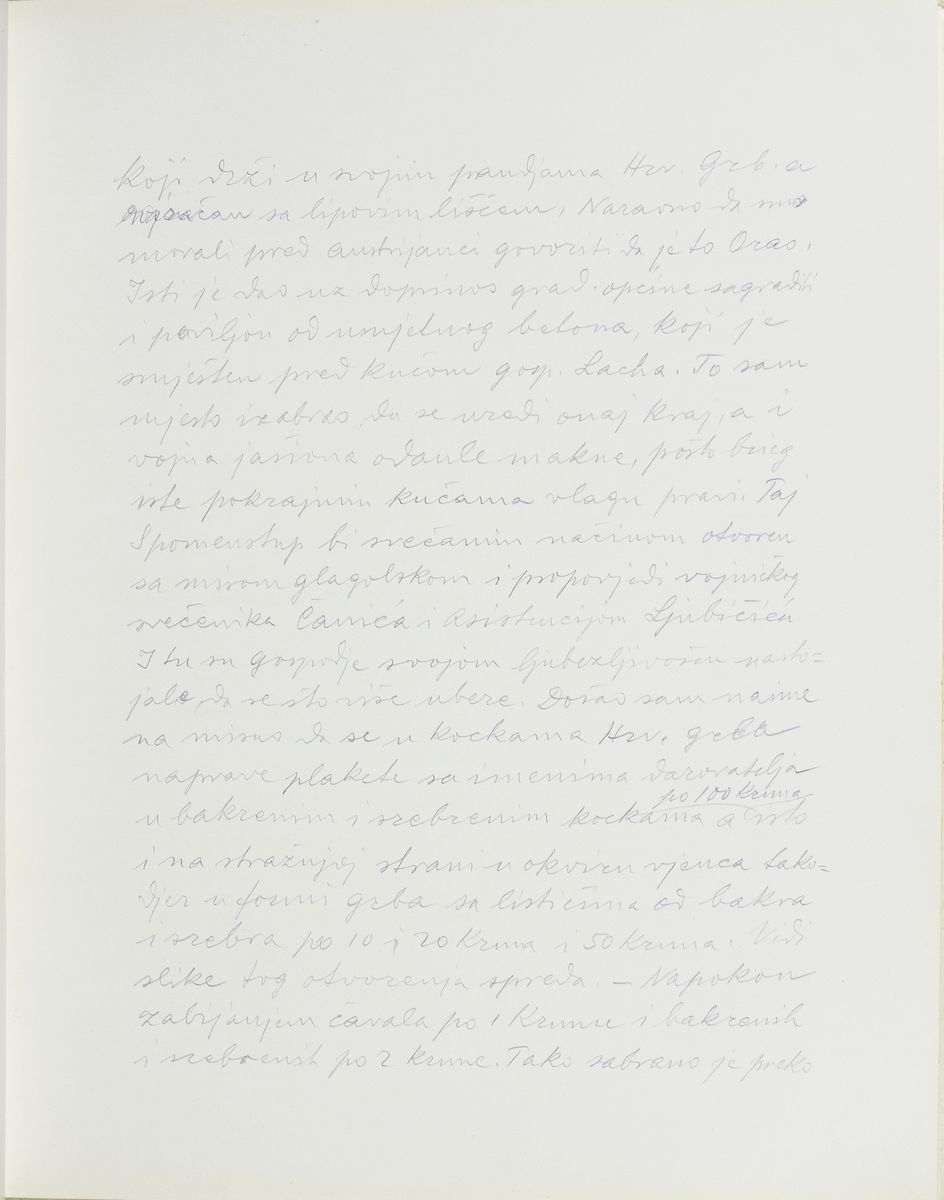 koji drži u svojim pandjama Hrv. Grb. a
ovjenčan sa lipovim lišćem, Naravno da smo
morali pred austrijanci govoriti da je to Orao.
Isti je dao uz doprinos grad. općine sagraditi
i paviljon od umjetnog betona, koji je
smješten pred kućom gosp. Lacha. To sam
mjesto izabrao, da se uredi onaj kraj, a i
vojna jašiona odanle makne, pošto bijeg
iste pokrajnim kućama vlagu pravi. Taj
Spomenstup bi svečanim načinom otvoren
sa misom glagolskom i propovjedi vojničkog
svećenika Čanića i Asistencijom Ljubičića
I tu su gospodje svojom ljubezljivošću nasto=
jale, da se što više ubere. Došao sam naime
na misao da se u kockama Hrv. grba
naprave plakete sa imenima darovatelja
po 100 Kruna
u bakrenim i srebrenim kockama a isto
i na stražnjoj strani u okviru vjenca tako=
djer u formi grba sa listićima od bakra
i srebra po 10 i 20 Kruna i 50 Kruna. Vidi
slike tog otvorenja spreda. – Napokon
zabijanjem čavala po 1 Krune i bakrenih
i srebrenih po 2 krune. Tako sabrano je preko